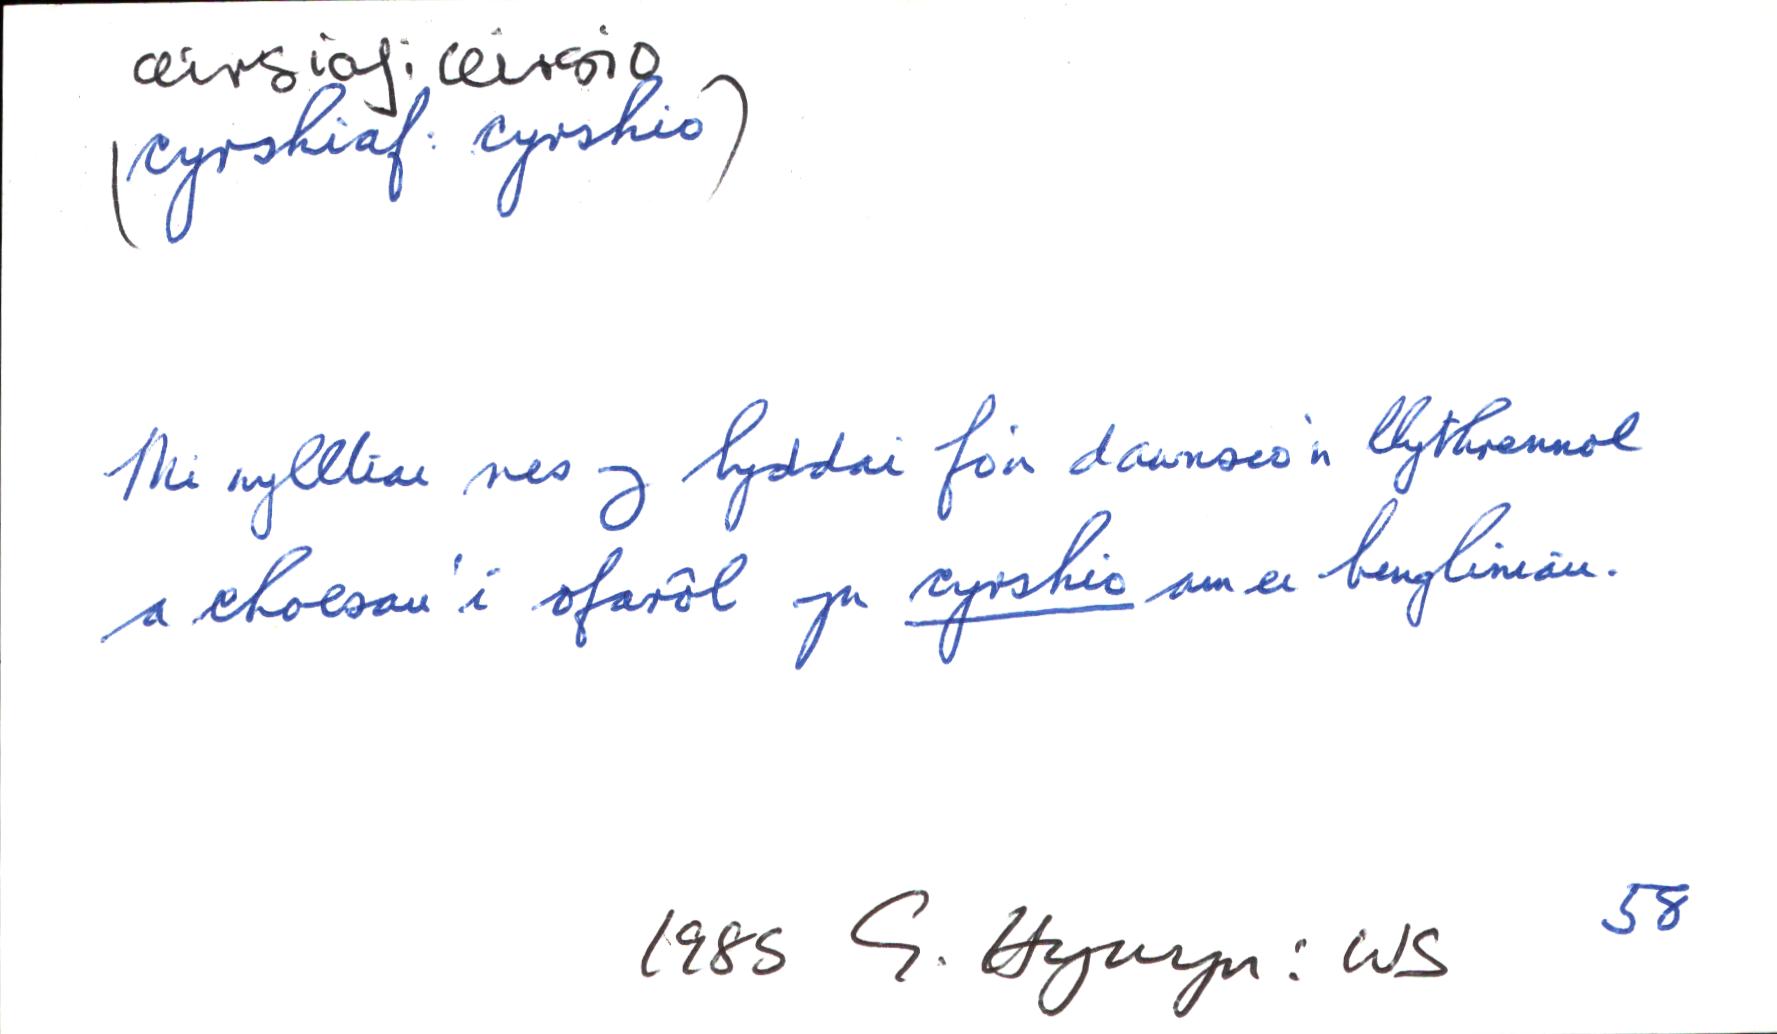 cwrsiaf: cwrsio
(cyrshiaf: cyrshio)
Mi wylltiai nes y byddai fo'n dawnsio'n llythrennol
a choesau'i ofarôl yn cyrshio am ei bengliniau.
58
1985 G. Hywyn: WS